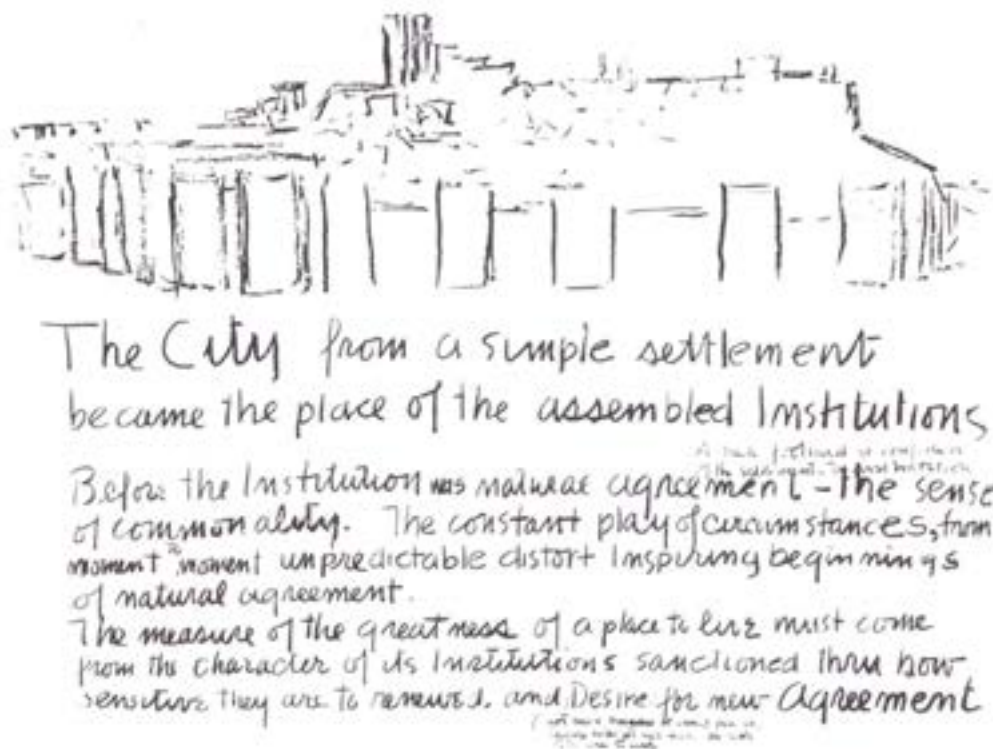 The City from a simple settlement
became the place of the assembled Institutions
Before the Institution was natural agreement - the sense
of commonality. The constant play of circumstances, from
moment to moment unpredictable distort Inspiring beginnings
of natural agreement.
The measure of the greatness of a place to live must come
from the character of its Institutions sanctioned thru how
sensitive they are to renewed. and Desire for new Agreement